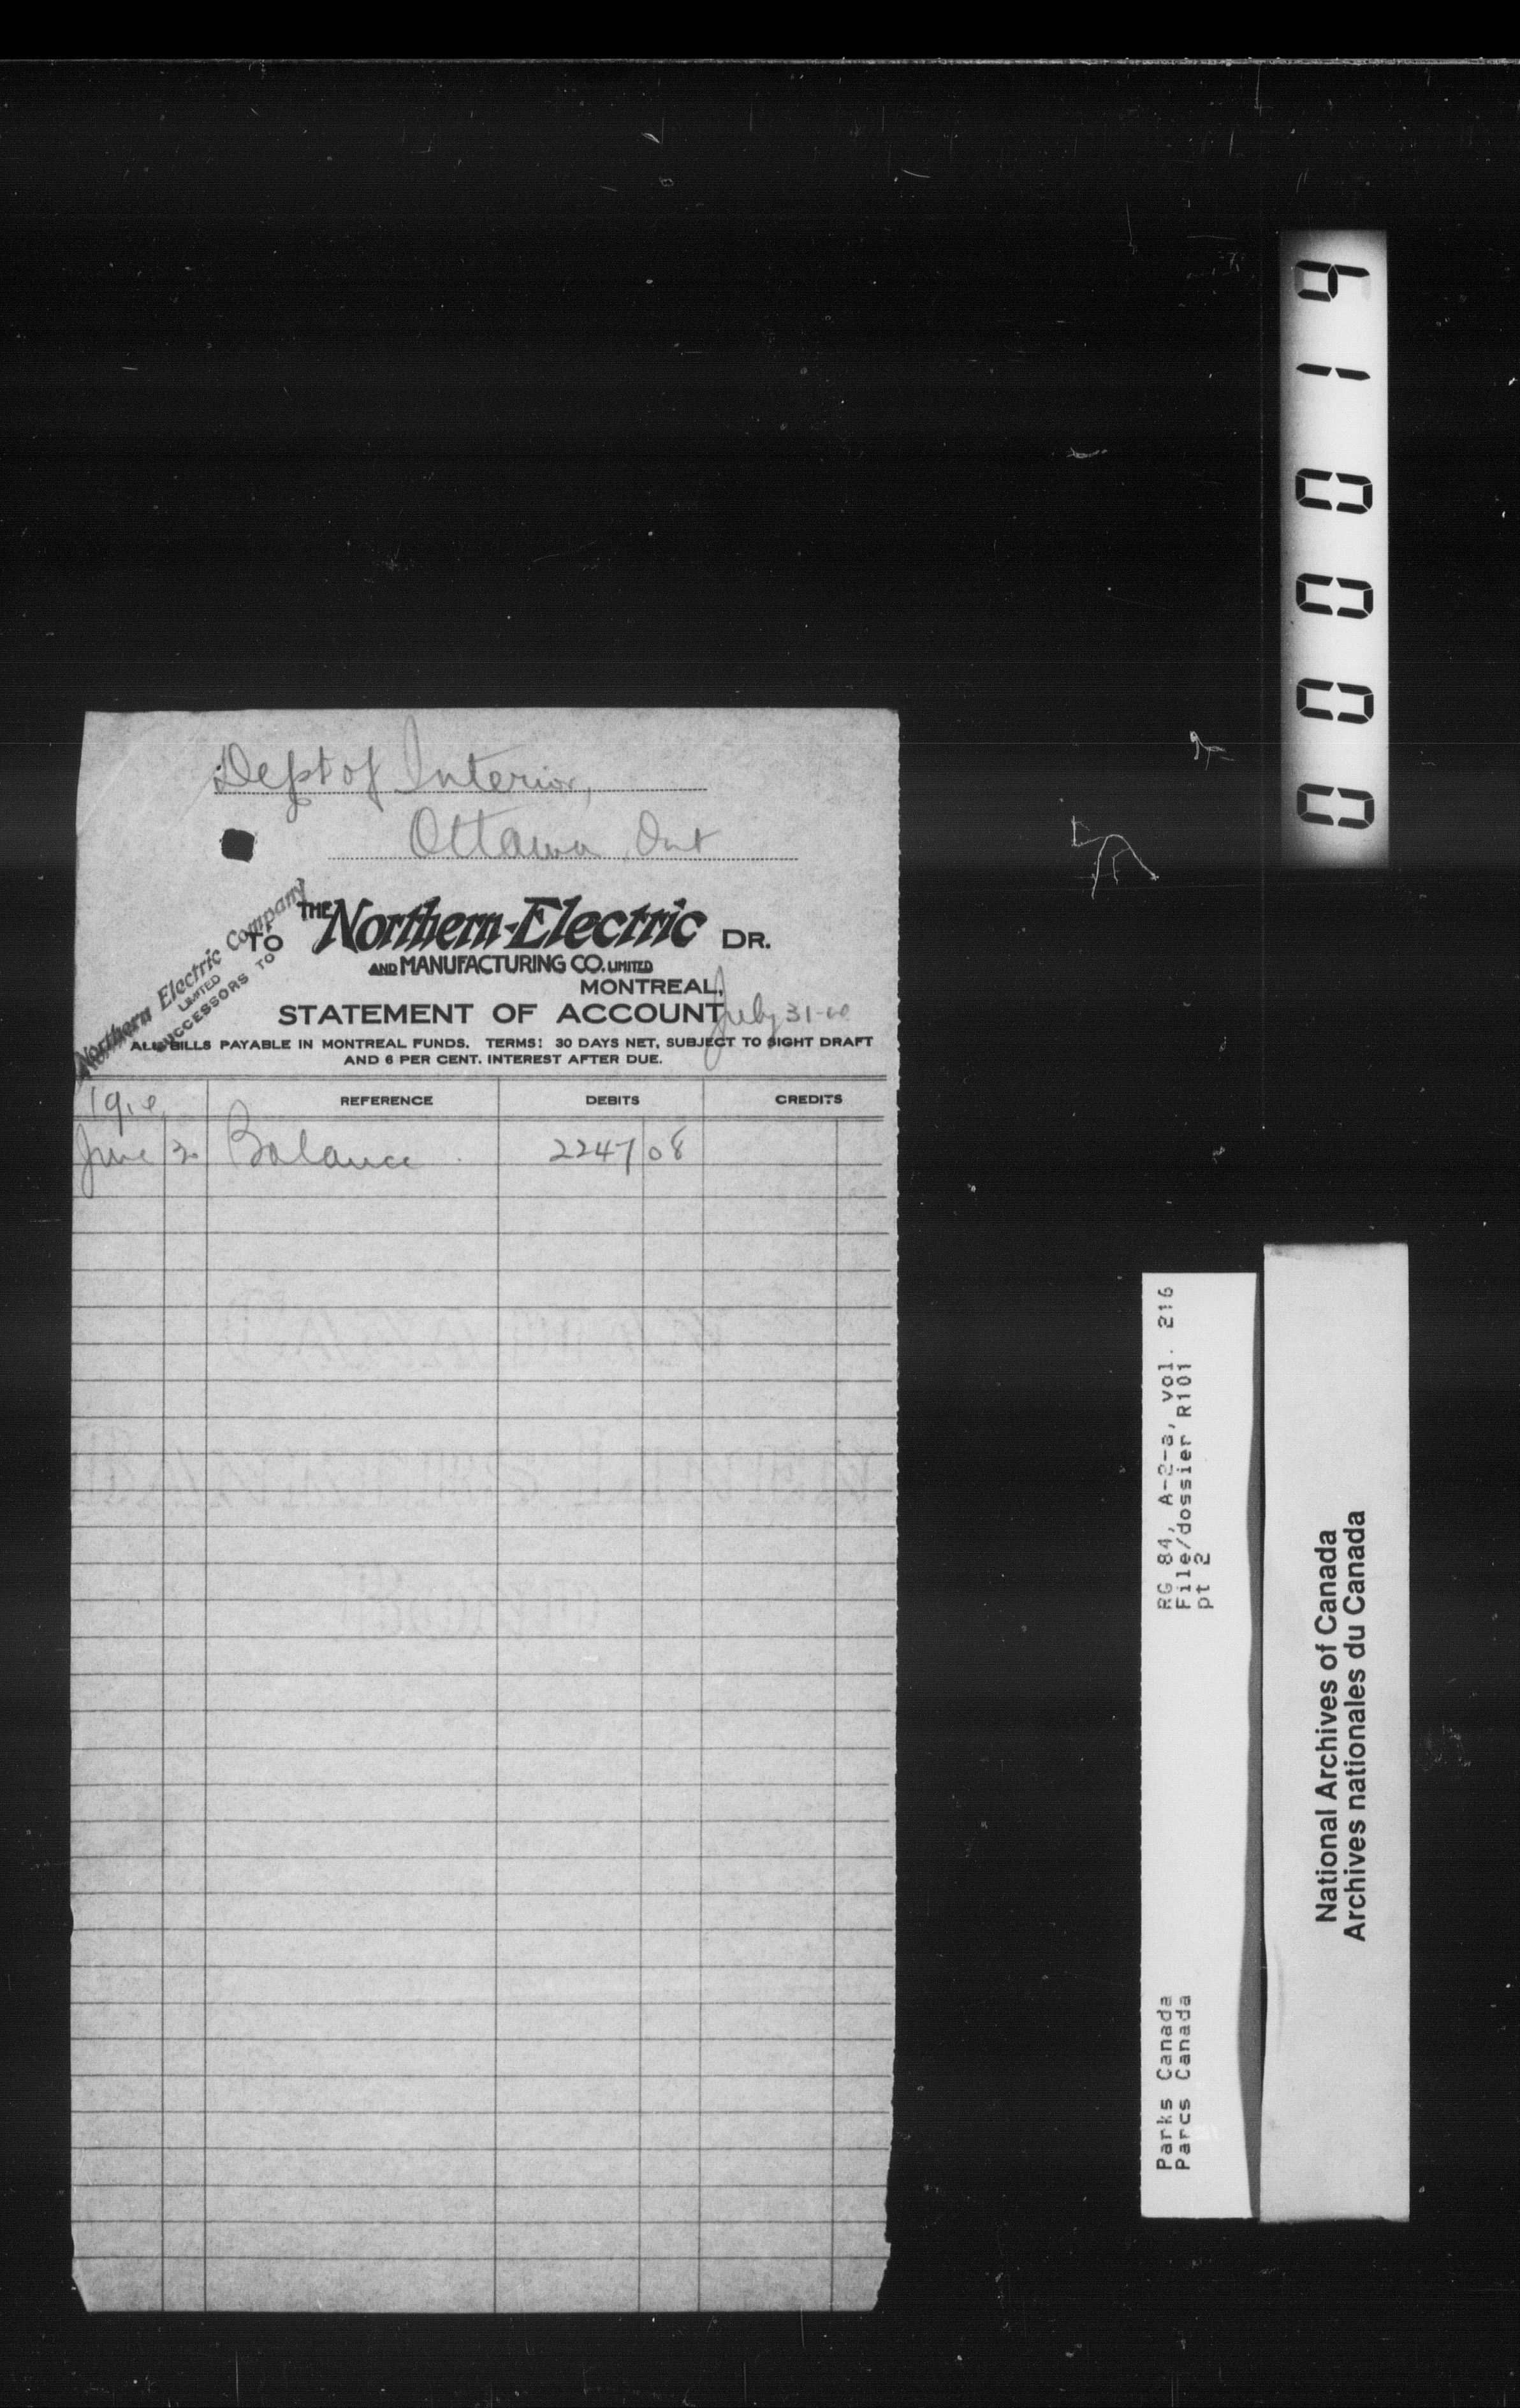 Dept of Interior,
Ottawa, Ont
Northern Electric Company
LIMITED
SUCCESSORS TO
TO THE Northern-Electric DR.
AND MANUFACTURING CO. LIMITED
MONTREAL,
STATEMENT OF ACCOUNT July 31
ALL BILLS PAYABLE IN MONTREAL FUNDS. TERMS: 30 DAYS NET, SUBJECT TO SIGHT DRAFT
AND 6 PER CENT. INTEREST AFTER DUE.
REFERENCE DEBITS CREDITS
June 30 Balance 2247 08
000014
RG 84, A-2-a, vol. 216
File/dossier R101
pt 2
Parks Canada
Parcs Canada
National Archives of Canada
Archives nationales du Canada